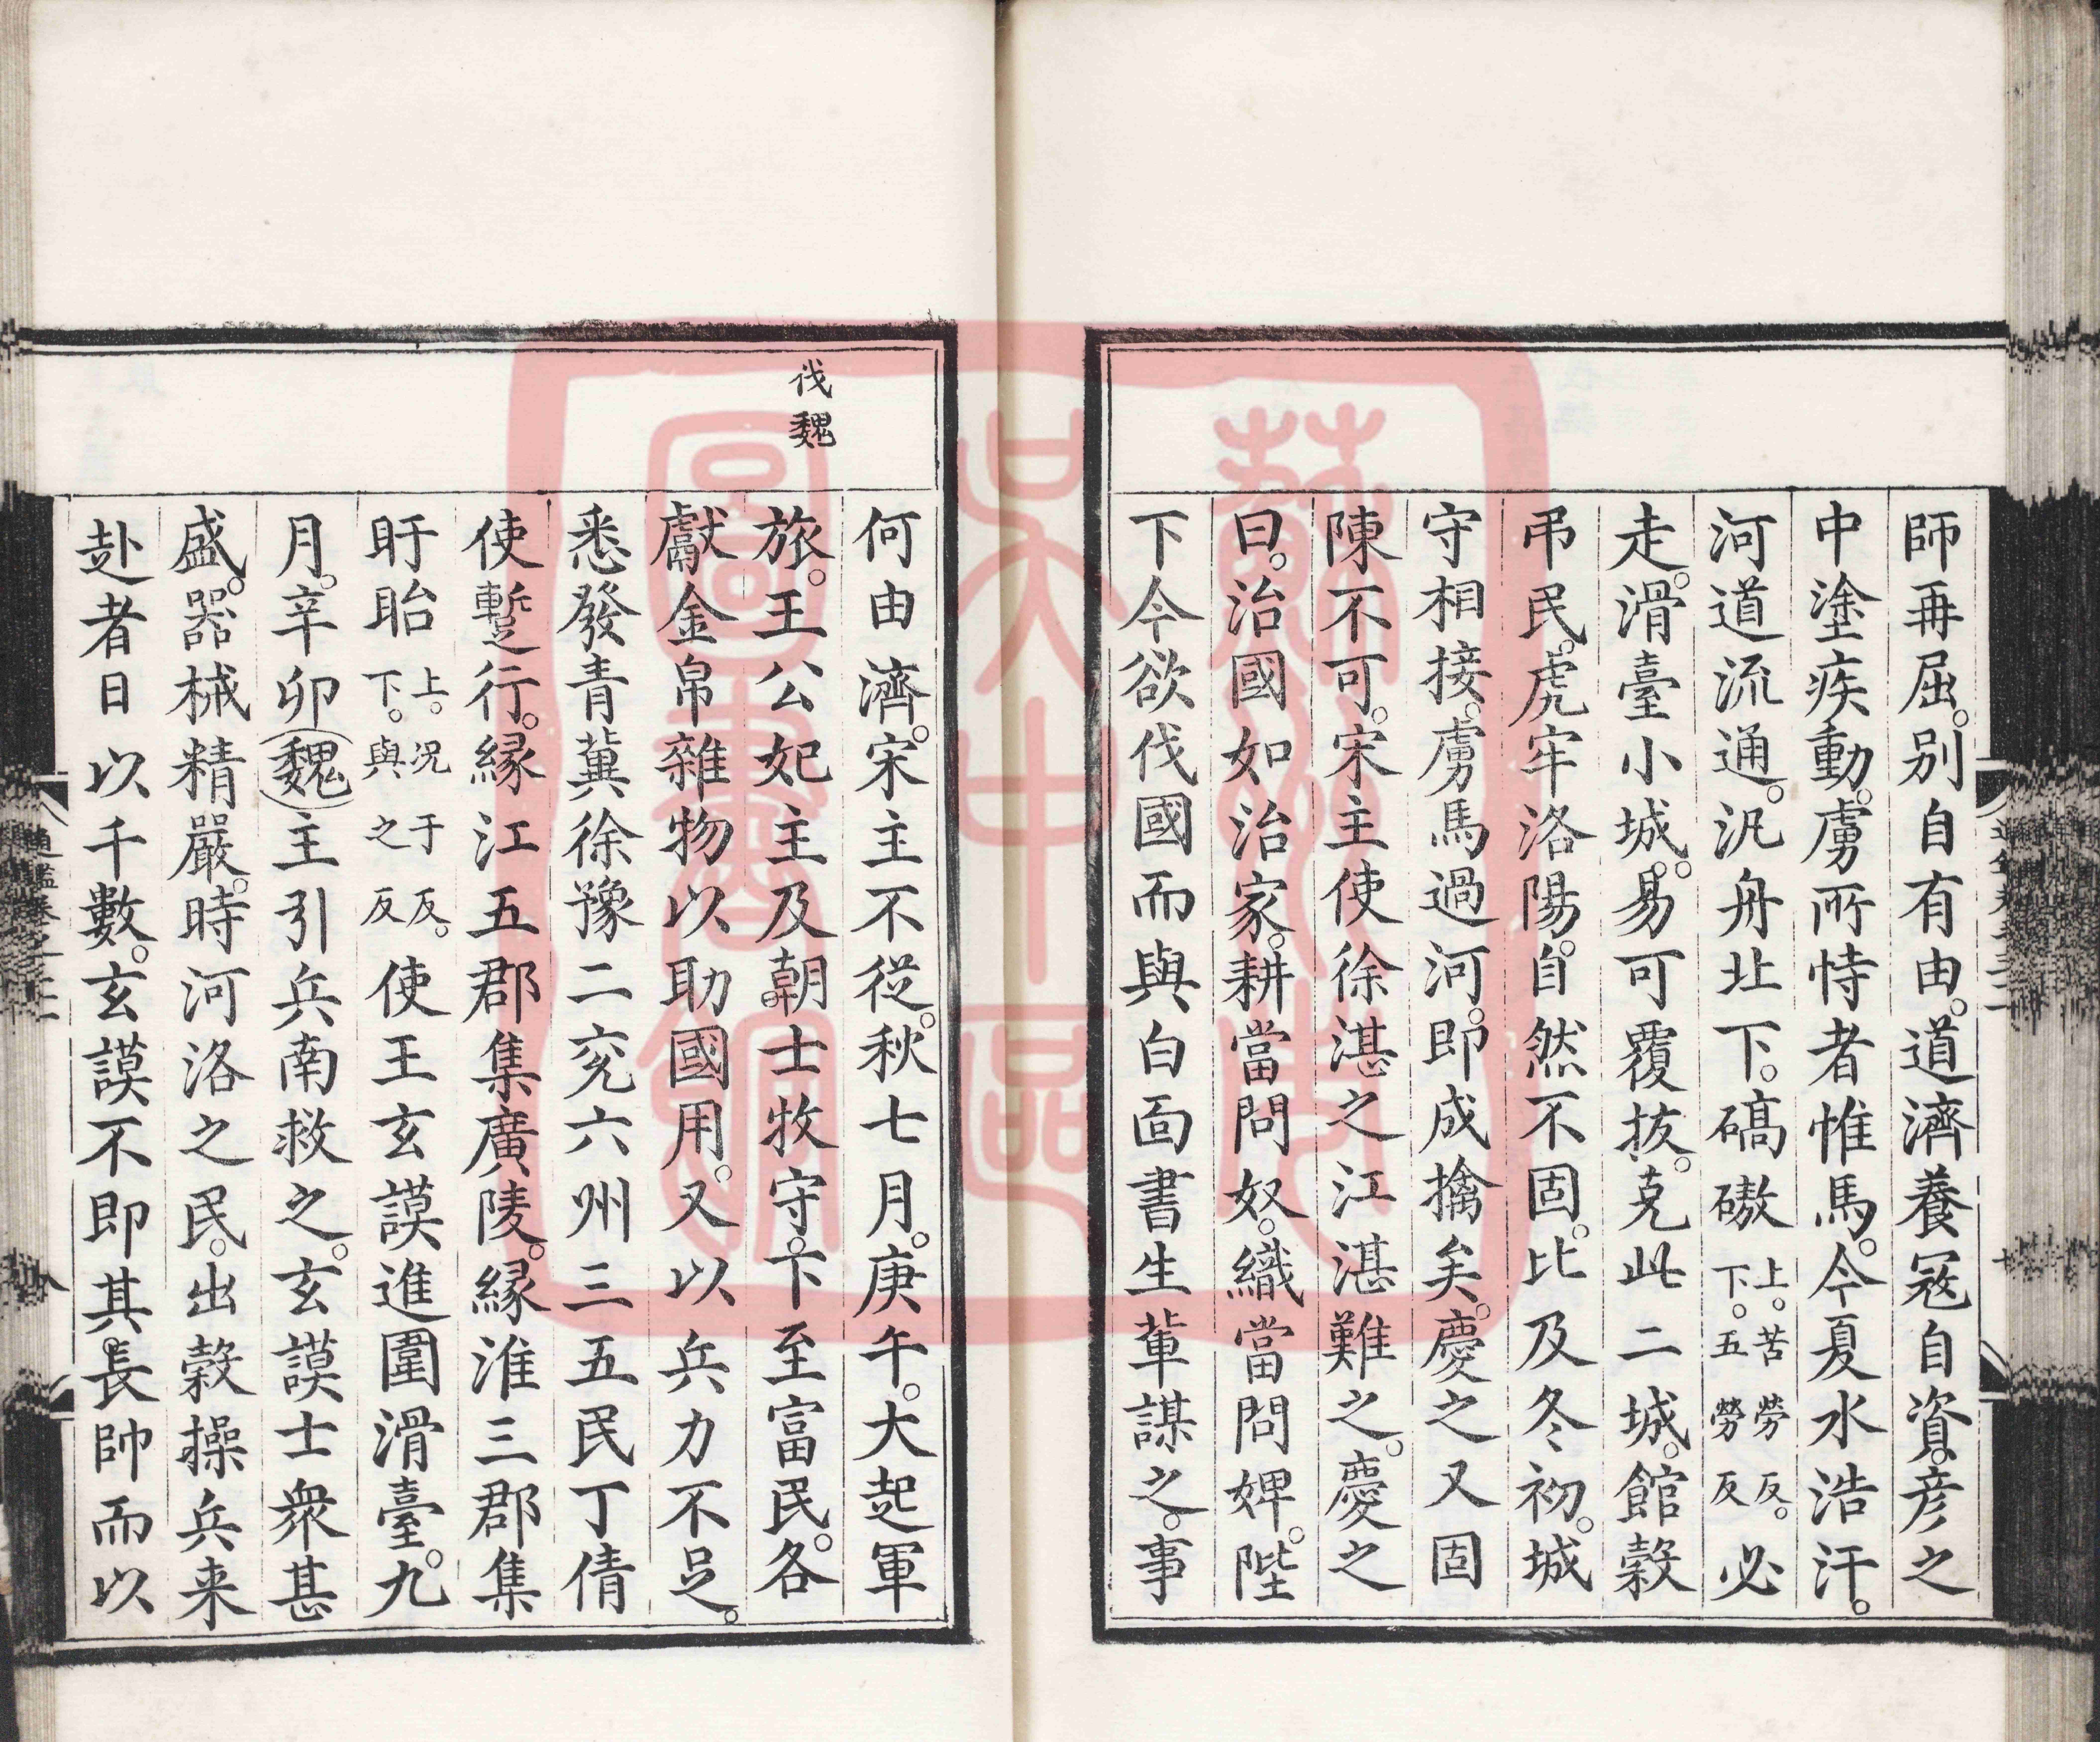 師再屈。别自有由。道濟養冦自資。彦之
中塗疾動。虜所恃者惟馬。今夏水浩汗。
河道流通。汎舟北下。碻磝上。苦勞反。下。五勞反必
走。滑臺小城。易可覆拔。克此二城。館穀
弔民。虎牢洛陽。自然不固。比及冬初。城
守相接。虜馬過河。即成擒矣。慶之又固
陳不可。宋主使徐湛之江湛難之。慶之
曰。治國如治家。耕當問奴。織當問婢。陛
下今欲伐國而與白面書生軰謀之。事
伐魏
何由濟。宋主不從。秋七月。庚午。大起軍
旅。王公妃主及朝士牧守。下至富民。各
獻金帛雜物以助國用。又以兵力不足。
悉發青冀徐豫二兖六州三五民丁倩
使蹔行。縁江五郡集廣陵。縁淮三郡集
盱眙上。况于反。下。與之反使王玄謨進圍滑臺。九
月。辛卯魏主引兵南救之。玄謨士衆甚
盛。器械精嚴。時河洛之民。出穀操兵来
赴者日以千數。玄謨不即其長帥而以
蘇州大學圖書館